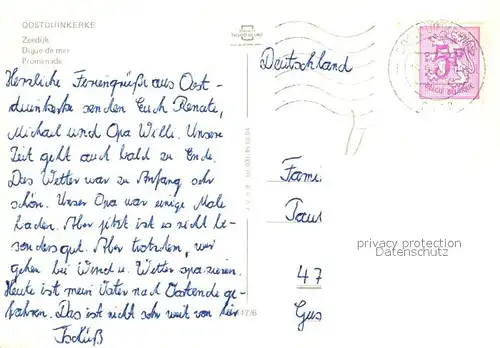 OOSTDUINKERKE
Zeedijk
Digue de mer
Promenade
Herzliche Feriengrüße aus Oost-
duinkerke senden Euch Renate,
Michael und Opa Willi. Unsere
Zeit geht auch bald zu Ende.
Das Wetter war zu Anfang sehr
schön. Unser Opa war einige Male
baden. Aber jetzt ist es nicht be-
sonders gut. Aber trotzdem, wir
gehen bei Wind u. Wetter spazieren.
Heute ist mein Vater nach Oostende ge-
fahren. Das ist nicht sehr weit von hier
Tschüß
Deutschland
5F
BELGIE BELGIQUE
Fami
47
privacy protection
Datenschutz